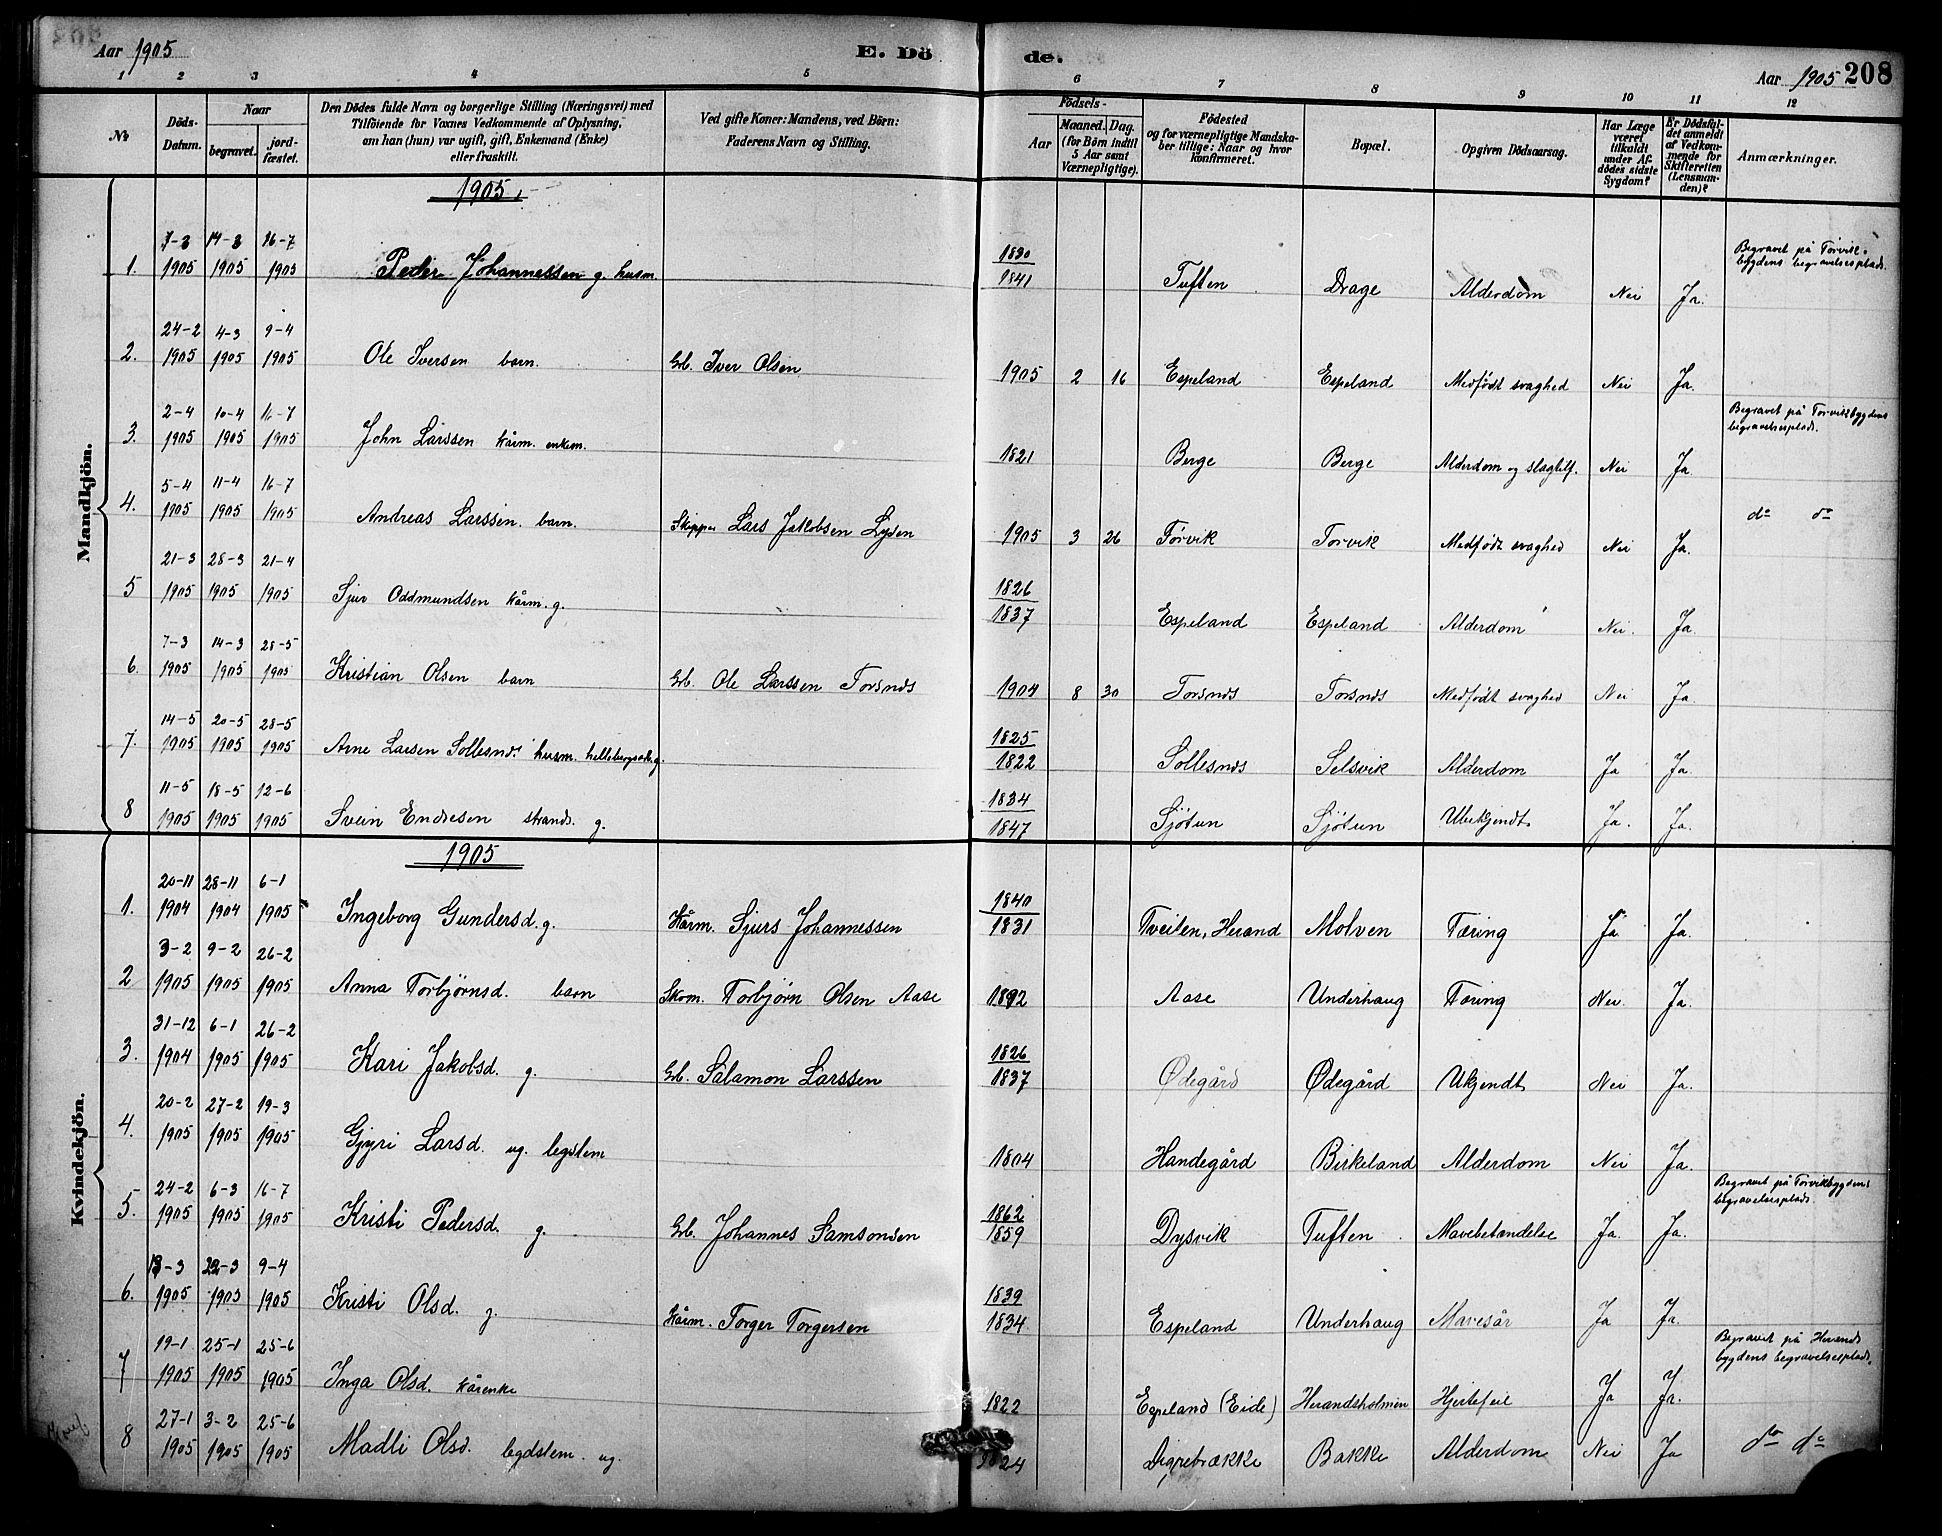 Aar 1905 E. Dö de. Aar 1905 208
1 2 3 4 5 6 7 8 9 10 11 12
No Döds-Datum. Naar begravet. jordfæstet. Den Dödes fulde Navn og borgerlige Stilling (Næringsvei) med Tilföiende for Voxnes Vedkommende af Oplysning, om han (hun) var ugift, gift, Enkemand (Enke) eller fraskilt. Ved gifte Koner: Mandens, ved Börn: Faderens Navn og Stilling. Födsels- Aar Maaned. Dag. (for Börn indtil 5 Aar samt Værnepligtige). Födested og for værnepligtige Mandskaber tillige: Naar og hvor konfirmeret. Bopæl. Opgiven Dödsaarsag. Har Læge været tilkaldt under Afdödes sidste Sygdom? Er Dödsfaldet anmeldt af Vedkommende for Skifteretten (Lensmanden)? Anmærkninger.
Mandkjön.
1905
1. 7-3 1905 14-3 1905 16-7 1905 Peder Johannessen g. husm 1830 1841 Tuften Drage Alderdom Nei Ja. Begravet på Torviksbygdens begravelsesplads.
2. 24-2 1905 4-3 1905 9-4 1905 Ole Iversen barn. Gb. Iver Olsen 1905 2 16 Espeland Espeland Medfødt svaghed Nei Ja.
3. 2-4 1905 10-4 1905 16-7 1905 John Larssen kårm. enkem. 1821 Berge Berge Alderdom og slagtilf. Nei Ja Begravet på Torviksbygdens begravelsesplads.
4. 5-4 1905 11-4 1905 16-7 1905 Andreas Larssen. barn. Skipper Lars Jakobsen Lysen 1905 3 26 Torvik Torvik Medfødt svaghed Nei Ja. do do
5 21-3 1905 28-3 1905 21-4 1905 Sjur Oddmundsen kårm. g. 1826 1837 Espeland Espeland Alderdom Nei. Ja.
6. 7-3 1905 14-3 1905 28-5 1905 Kristian Olsen barn Gb. Ole Larssen Torsnes 1904 8 30 Torsnes Torsnes Medfødt svaghed Nei Ja
7. 14-5 1905 20-5 1905 28-5 1905 Arne Larsen Sollesnes husm. g. 1825 1822 Sollesnes Selsvik Alderdom Ja Ja.
8 11-5 1905 18-5 1905 12-6 1905 Svein Endresen strands. g. 1834 1847 Sjøtun Sjøtun Ubekjendt Ja. Ja.
Kvindekjön.
1905
1. 20-11 1904 28-11 1904 6-1 1905 Ingeborg Gundersd. g. Kårm. Sjurs Johannessen 1840 1831 Tveiten, Herand Molven Tæring Ja Ja.
2 3-2 1905 9-2 1905 26-2 1905 Anna Torbjørnsd. barn Skom. Torbjørn Olsen Aase 1892 Aase Underhaug Tæring Nei. Ja.
3. 31-12 1904 6-1 1905 26-2 1905 Kari Jakobsd. g. Gb. Salamon Larssen 1826 1837 Ødegård Ødegård Ukjendt Nei Ja.
4. 20-2 1905 27-2 1905 19-3 1905 Gjyri Larsd. ug. legdslem 1804 Handegård Birkeland Alderdom Nei Ja.
5. 24-2 1905 6-3 1905 16-7 1905 Kristi Pedersd. g. Gb. Johannes Samsonsen 1862 1859 Dysvik Tuften. Mavebetændelse Ja. Ja. Begravet på Torvikbygdens begravelsesplads.
6. 13-3 1905 22-3 1905 9-4 1905 Kristi Olsd. g. Kårm. Torger Torgersen 1839 1834 Espeland Underhaug Mavesår Ja Ja.
7 19-1 1905 25-1 1905 25-6 1905 Inga Olsd. kårenke 1822 Espeland (Eide) Herandsholmen Hjertefeil Ja Ja. Begravet på Herandsbygdens begravelsesplads.
8 27-1 1905 3-2 1905 25-6 1905 Madli Olsd. legdslem. ug. 1824 Digrebrække Bakke Alderdom Nei Ja do do